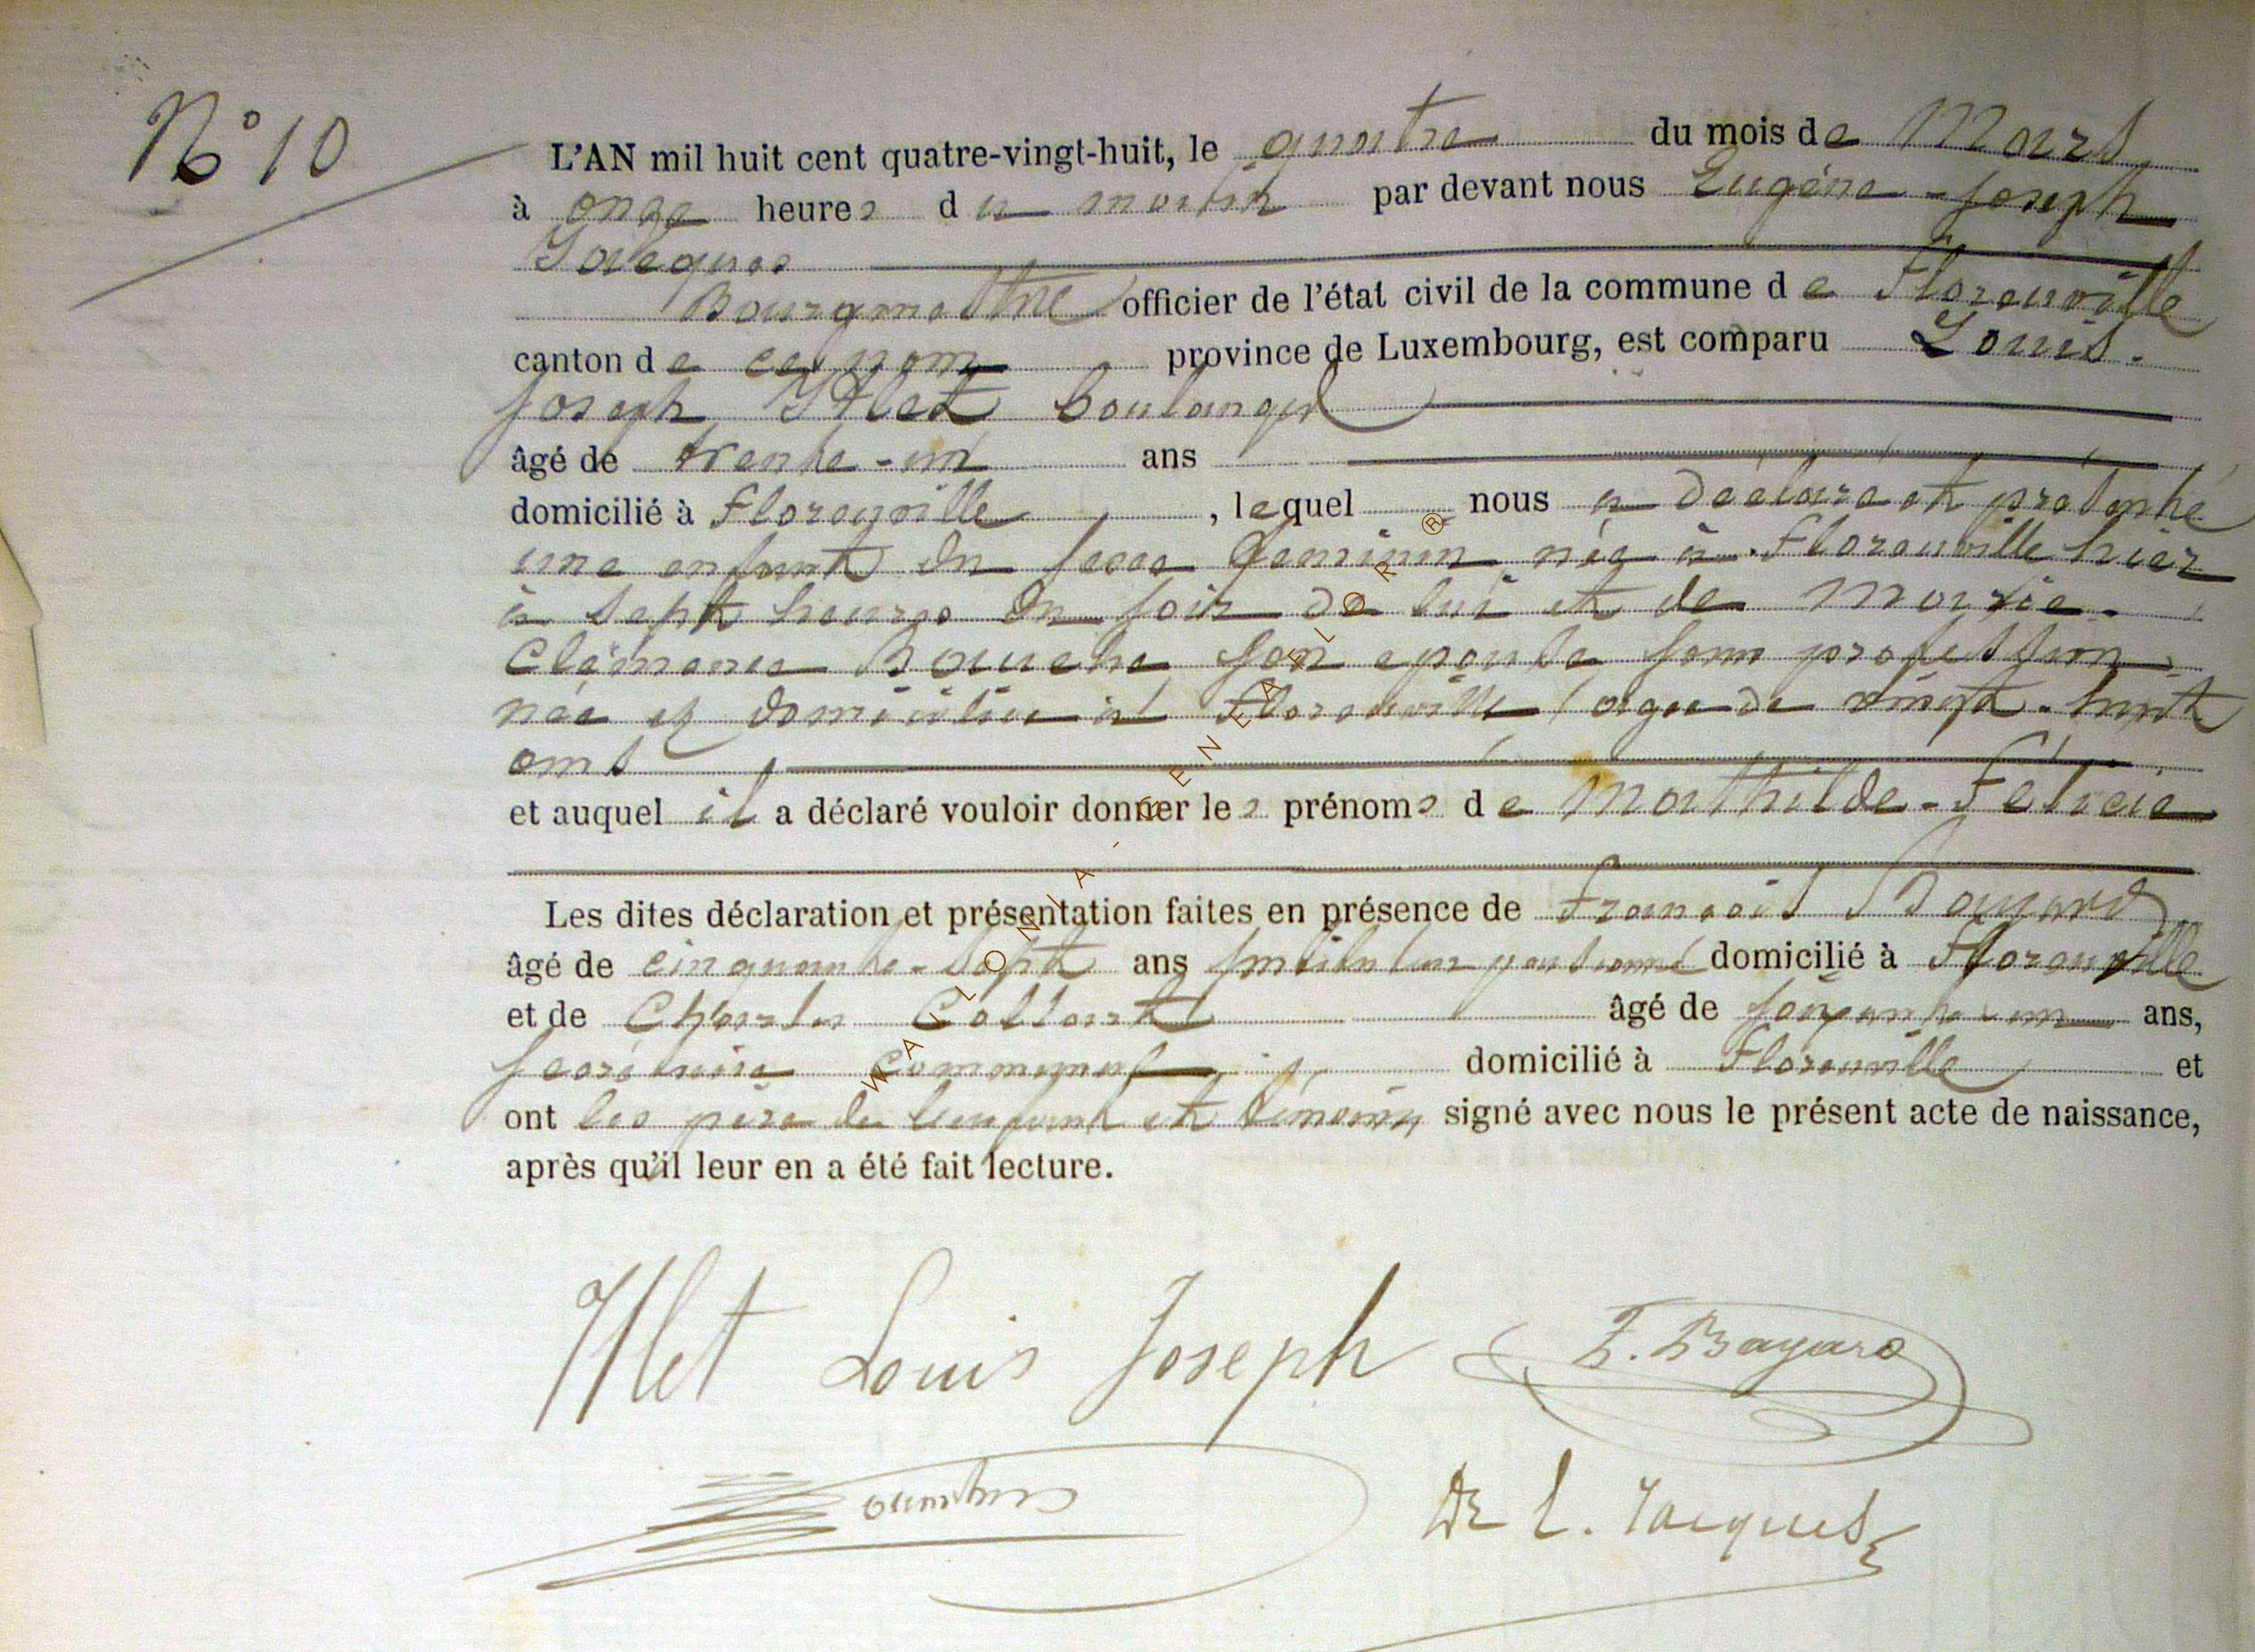 N° 10
L'AN mil huit cent quatre-vingt-huit, le quatre du mois de Mars
à onze heures du matin par devant nous Eugène-Joseph
Jacques
Bourgmestre officier de l'état civil de la commune de Florenville
canton de ce nom province de Luxembourg, est comparu Louis-
Joseph Hlet boulanger
âgé de trente-un ans
domicilié à Florenville, lequel nous a déclaré et présenté
une enfant du sexe feminin née à Florenville hier
à sept heures du soir de lui et de Marie-
Clémence Bouché son epouse sans profession
née et domiciliée à Florenville âgée de vingt-huit
ans
et auquel il a déclaré vouloir donner les prénoms de Mathilde-Félicie
Les dites déclaration et présentation faites en présence de François Bayard
âgé de cinquante-sept ans instituteur pensionné domicilié à Florenville
et de Charles Collart âgé de soixante-un ans,
secrétaire communal domicilié à Florenville et
ont les père de l'enfant et témoins signé avec nous le présent acte de naissance,
après qu'il leur en a été fait lecture.
Hlet Louis Joseph F. Bayard
Dr E. Jacques
WALLONIA - GENEALOR ®